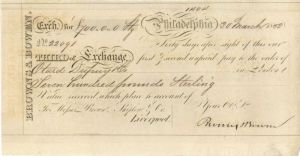 BROWNS & BOWEN.
Exch. for £700.0.0 Stg Philadelphia 20 March 1852
Sixty days after sight of this our
THIRD of Exchange. first & second unpaid pay to the order of
Otard Dupuy & Co in London
Seven Hundred pounds Sterling
Value received, which place to account of
To Messrs Brown Shipley & Co Your Ob. St
Liverpool. Browns & Bowen